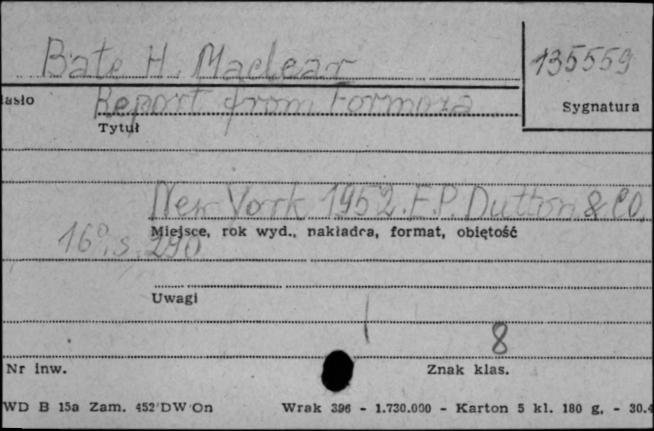 Bate H. Maclear
135559
asło
Report from Formoza
Sygnatura
Tytuł
New York 1952. E.P. Dutton & CO.
Miejsce, rok wyd., nakładca, format, objętość
16°. s. 290
Uwagi
8
Nr inw.
Znak klas.
WD B 15a Zam. 452/DW On
Wrak 396 - 1.730.000 - Karton 5 kl. 180 g. - 30.4